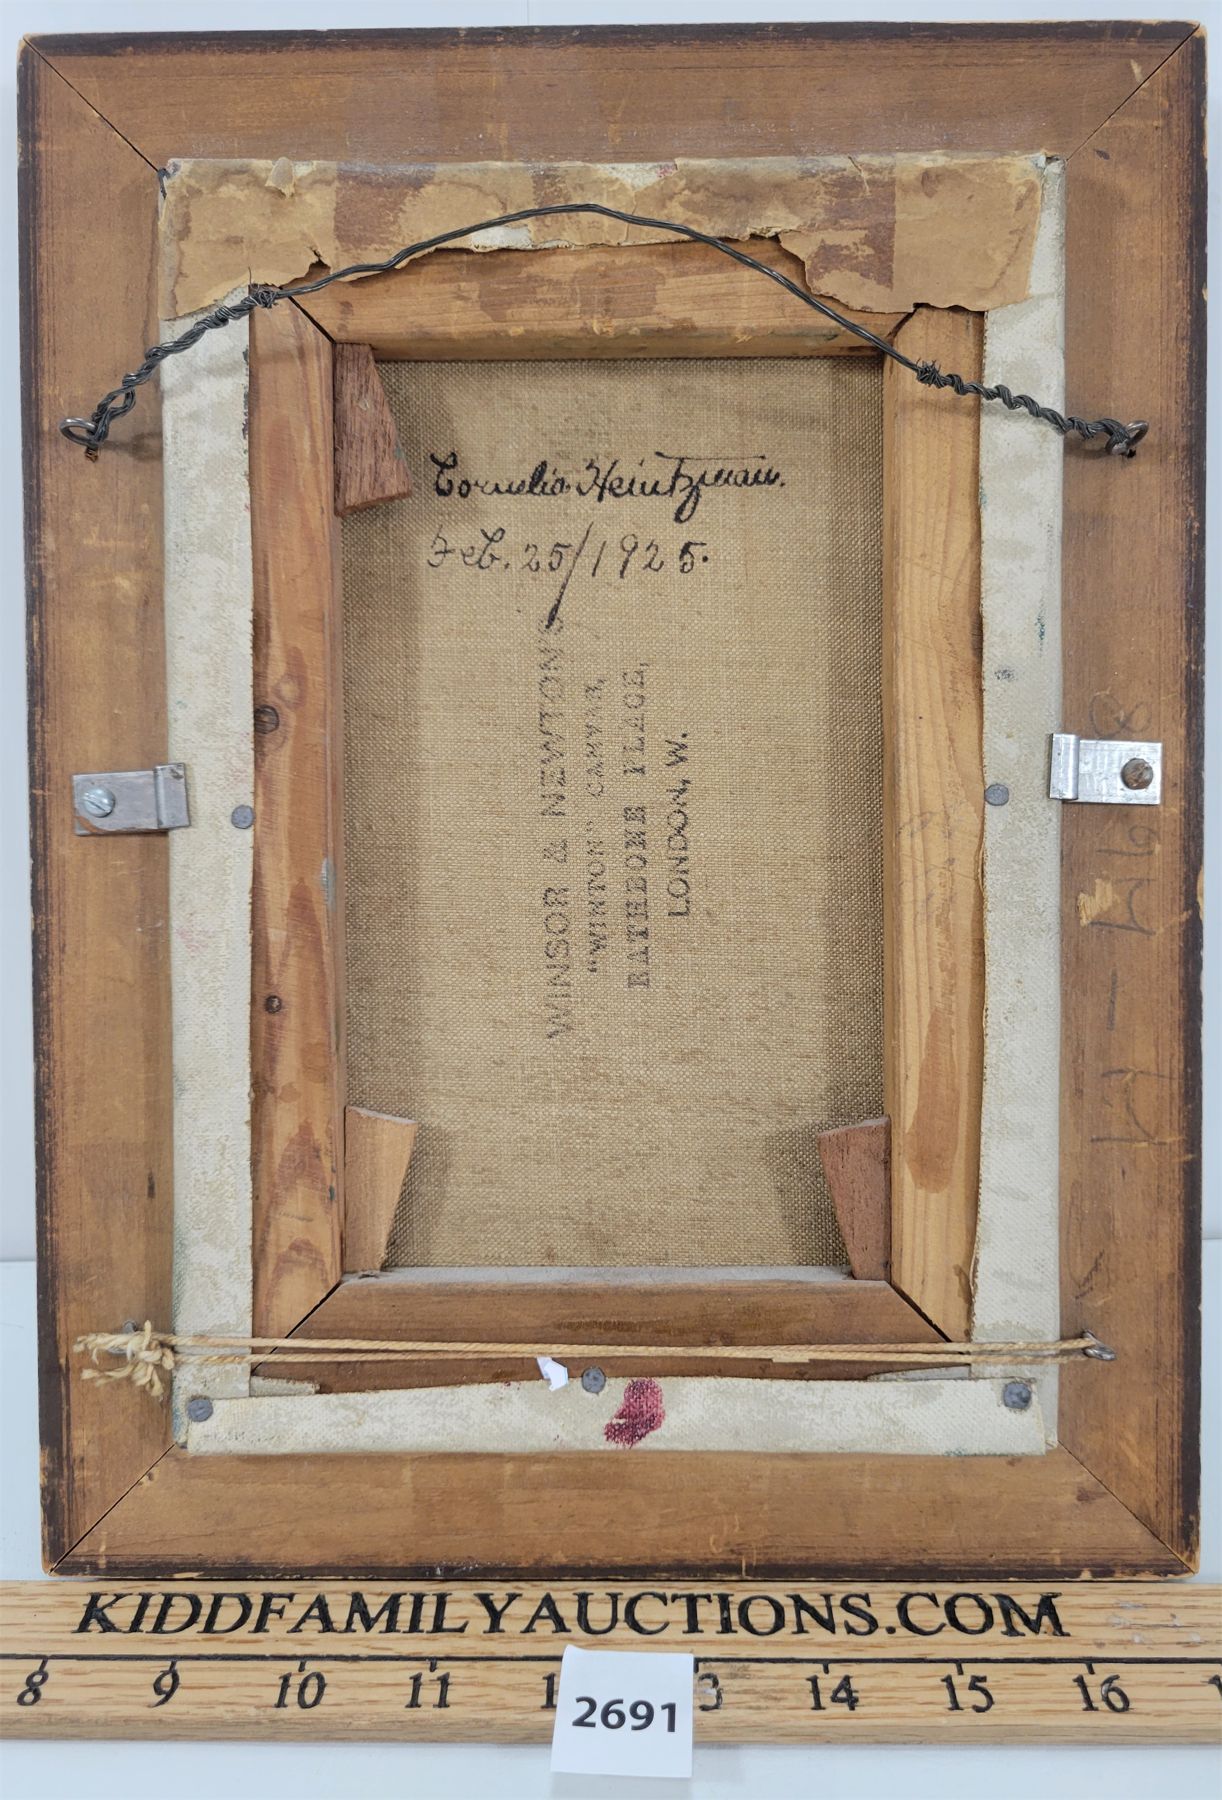 Cornelia Heintzman.
Feb. 25/1925.
WINSOR & NEWTON'S
"WINTON" CANVAS,
RATHBONE PLACE,
LONDON, W.
KIDDFAMILYAUCTIONS.COM
8 9 10 11 14 15 16
2691